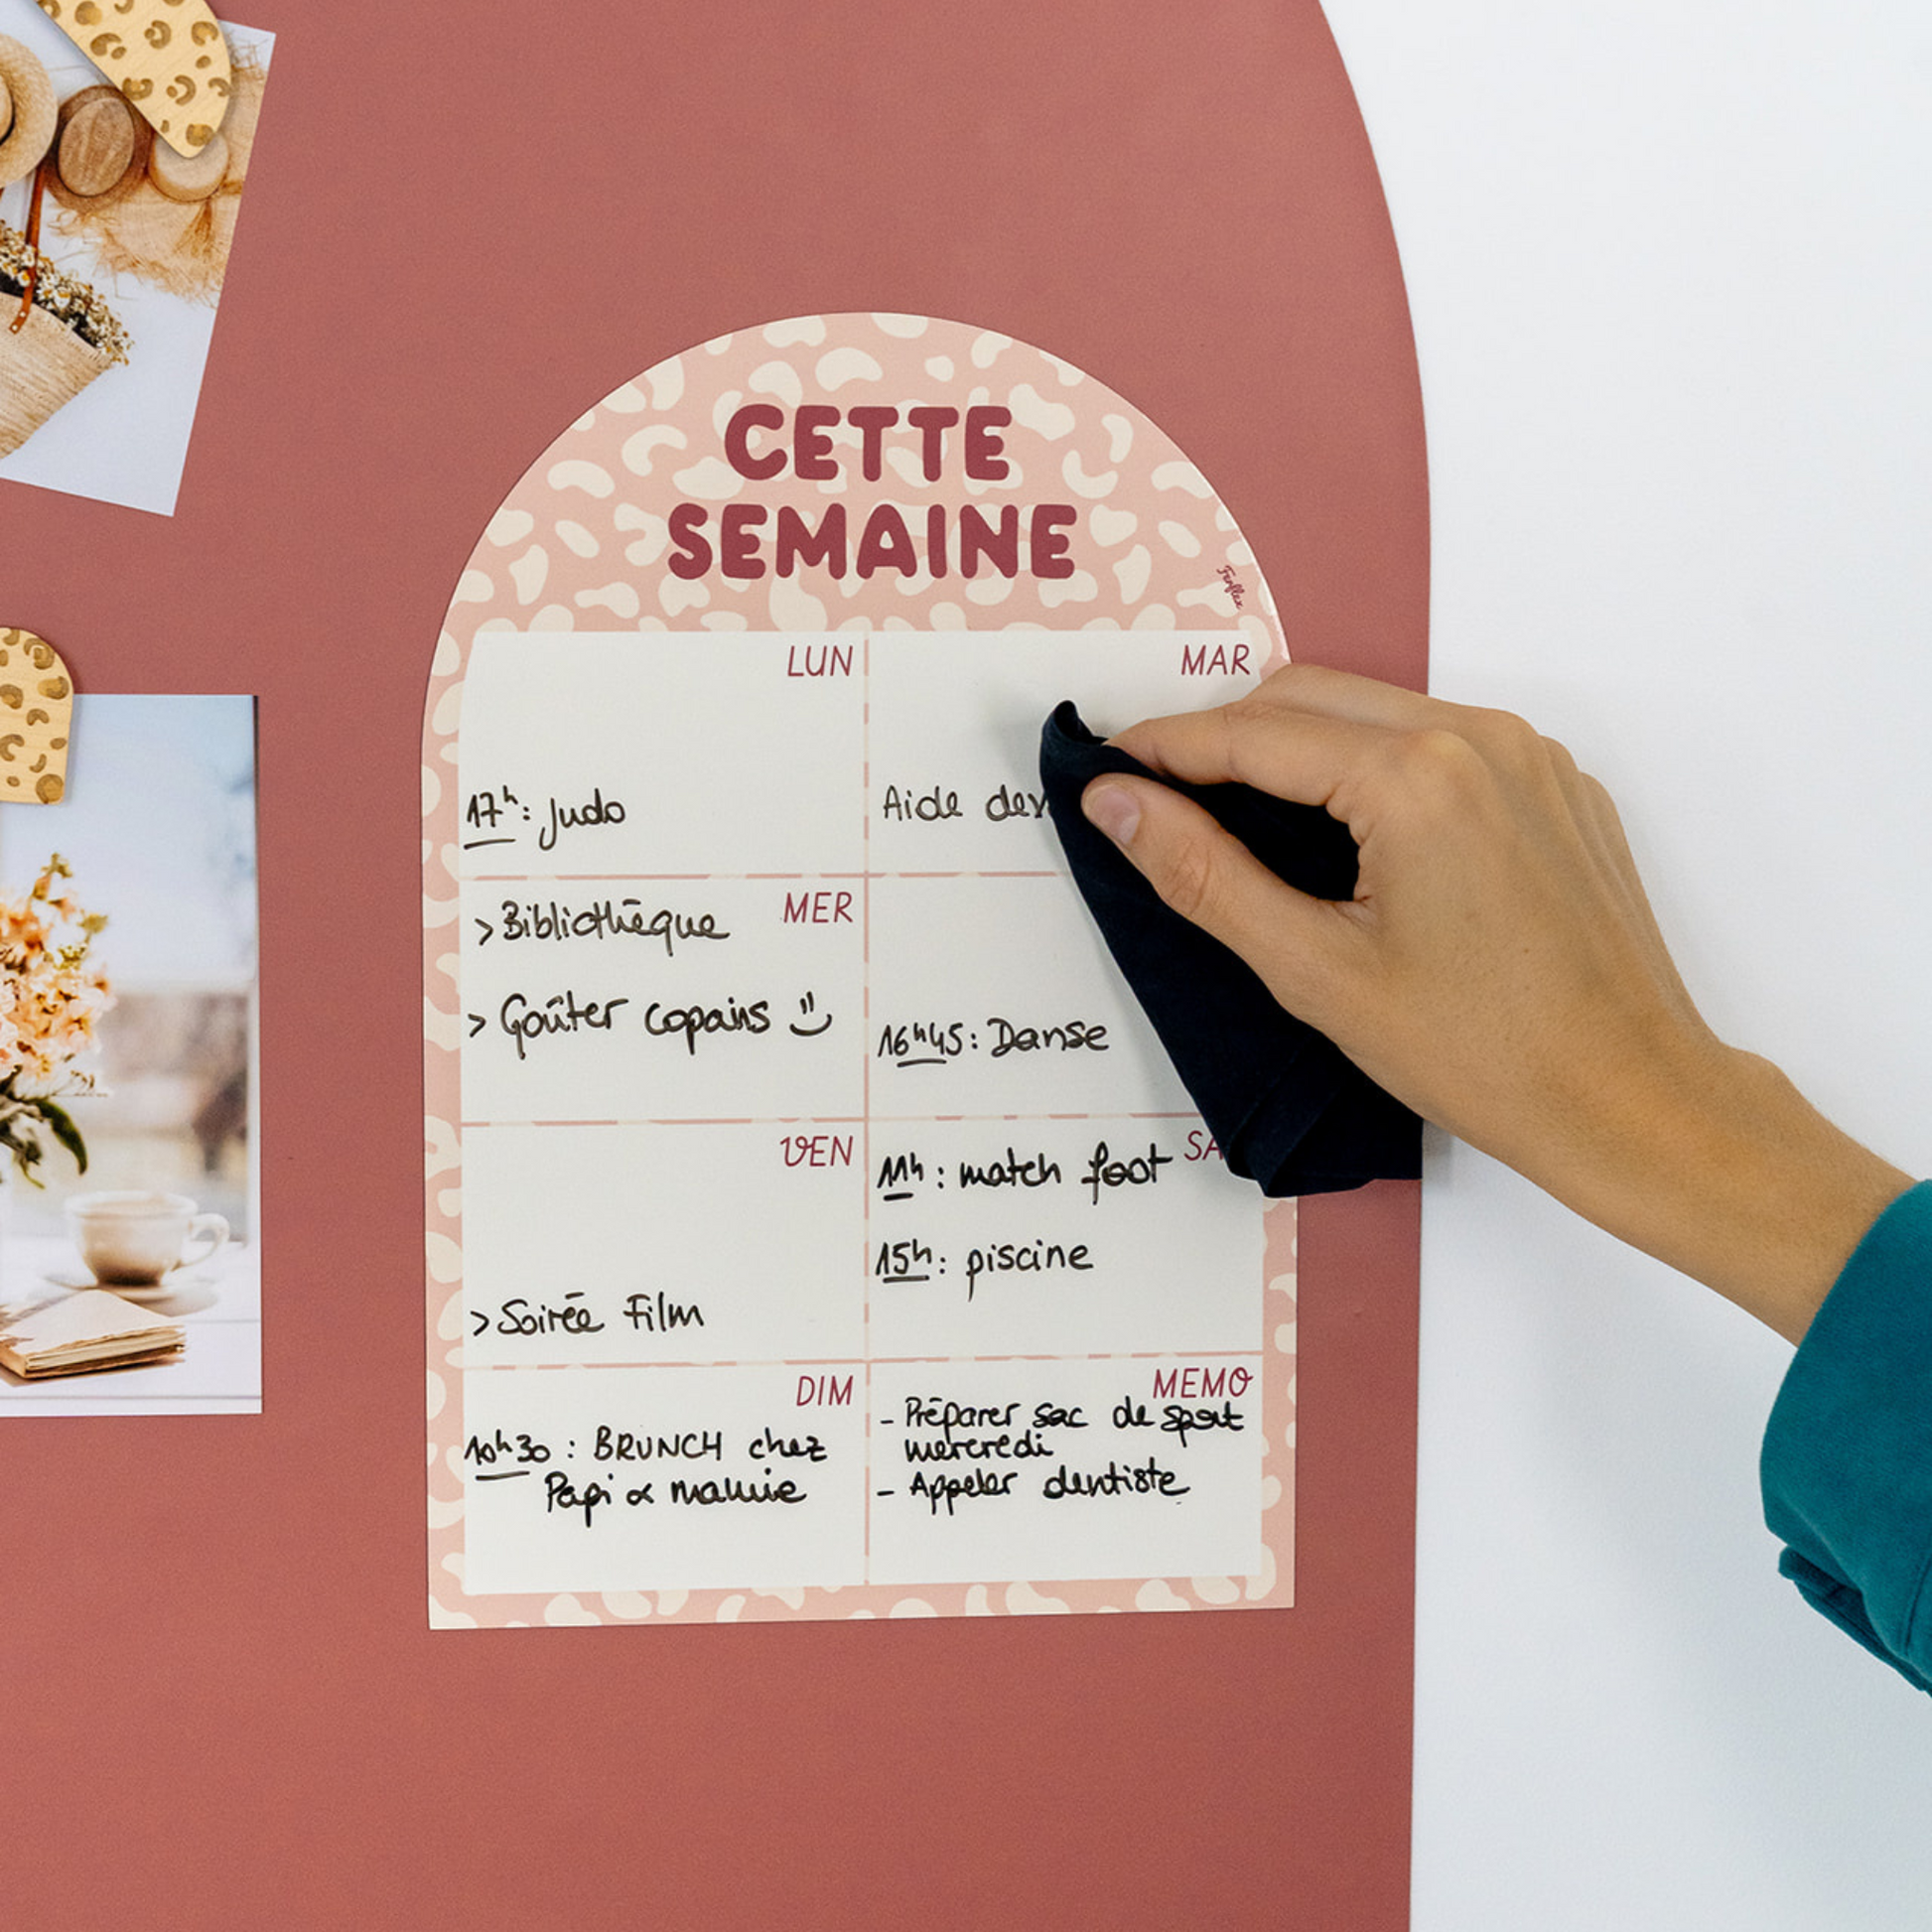 CETTE
SEMAINE
Ferflex
LUN
17h: Judo
MAR
Aide dev
MER
> Bibliothèque
> Goûter copains
16h45: Danse
VEN
> Soirée Film
SA
11h: match foot
15h: piscine
DIM
10h30 : BRUNCH chez
Papi & mamie
MEMO
- Préparer sac de sport
mercredi
- Appeler dentiste